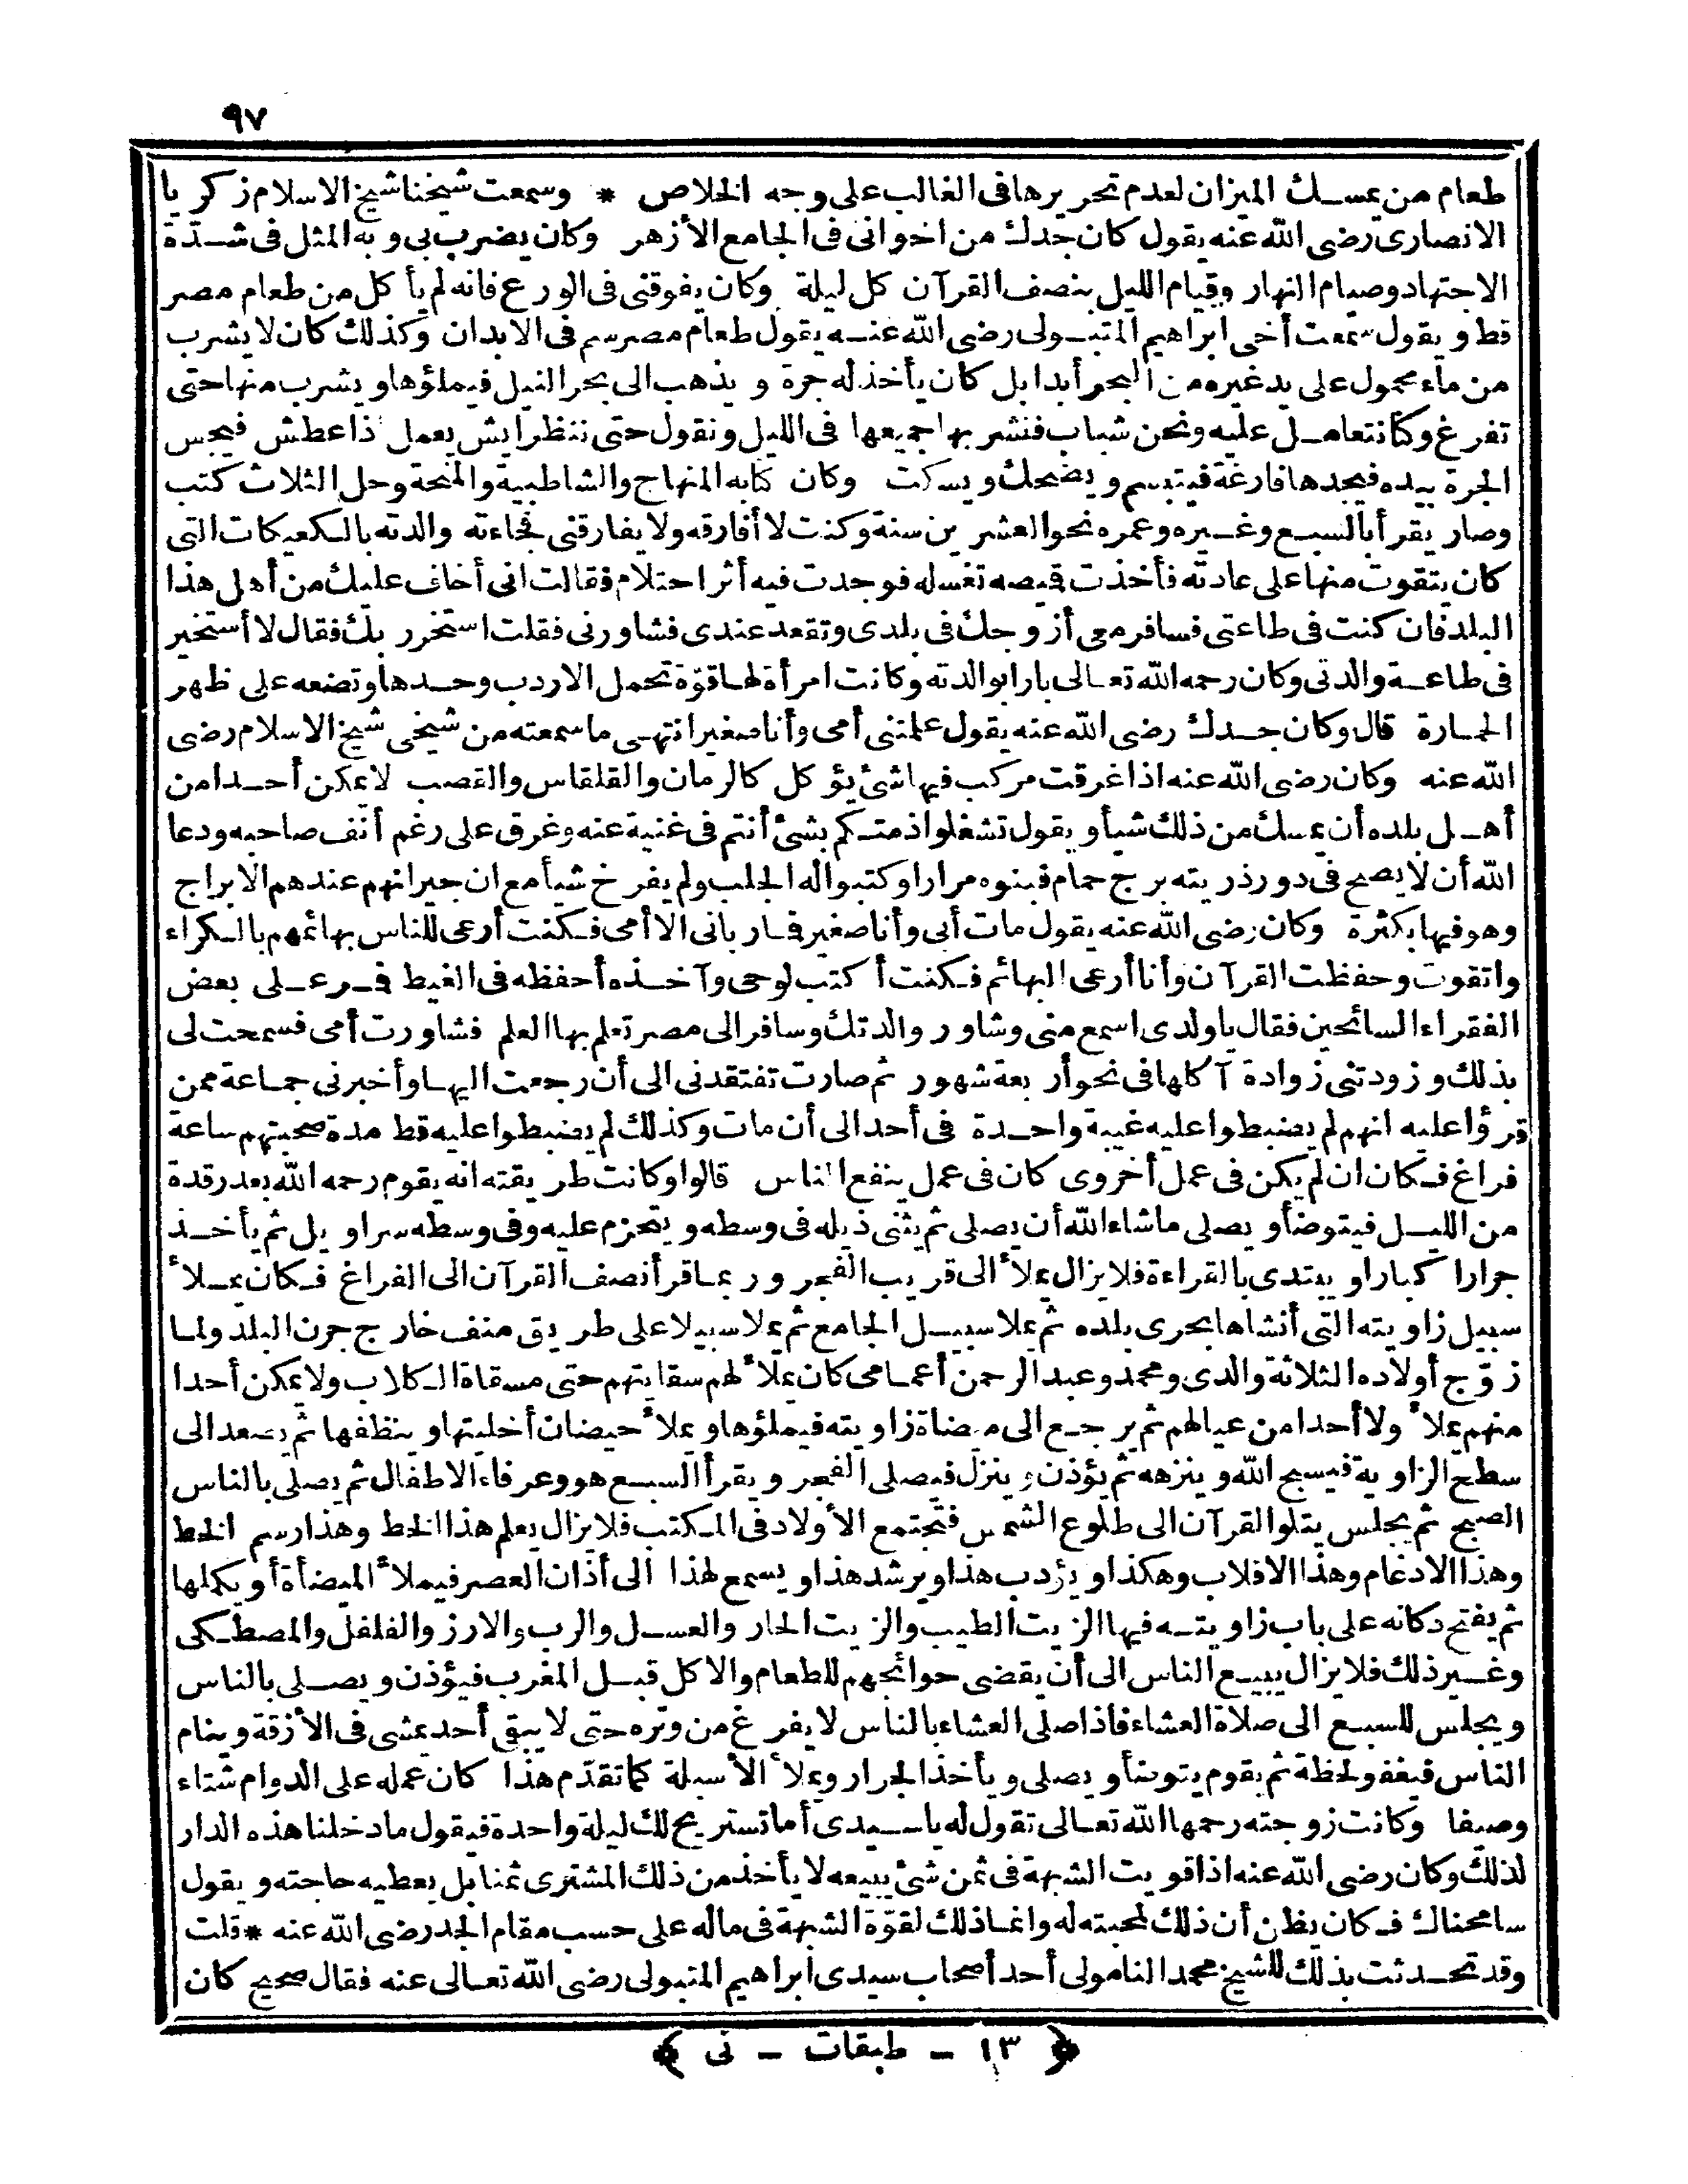 ٩٧
طعام من يمسك الميزان لعدم تحريرها فى الغالب على وجه الخلاص * وسمعت شيخنا شيخ الاسلام زكريا
الانصارى رضى الله عنه يقول كان جدك من اخوانى فى الجامع الأزهر وكان يضرب بى وبه المثل فى شدة
الاجتهاد وصيام النهار وقيام الليل بنصف القرآن كل ليلة وكان يفوقنى فى الورع فانه لم يأكل من طعام مصر
قط ويقول سمعت أخى ابراهيم المتبولى رضى الله عنه يقول طعام مصر سم فى الابدان وكذلك كان لا يشرب
من ماء محمول على يد غيره من البحر أبدا بل كان يأخذ له جرة ويذهب الى بحر النيل فيملؤها ويشرب منها حتى
تفرغ وكنا نتعامل عليه ونحن شباب فنشربها جميعها فى الليل ونقول حتى ننظر ايش يعمل اذا عطش فيجس
الجرة بيده فيجدها فارغة فيتبسم ويضحك ويسكت وكان كتابه المنهاج والشاطبية والمنحة وحل الثلاث كتب
وصار يقرأ بالسبع وغيره وعمره نحو العشرين سنة وكنت لا أفارقه ولا يفارقنى فجاءته والدته بالكعيكات التى
كان يتقوت منها على عادته فأخذت قميصه تغسله فوجدت فيه أثر احتلام فقالت انى أخاف عليك من أهل هذا
البلد فان كنت فى طاعتى فسافر معى أزوجك فى بلدى وتقعد عندى فشاورنى فقلت استخر ربك فقال لا أستخير
فى طاعة والدتى وكان رحمه الله تعالى بارا بوالدته وكانت امرأة لها قوّة تحمل الاردب وحدها وتضعه على ظهر
الحمارة قال وكان جدك رضى الله عنه يقول علمتنى أمى وأنا صغير انتهى ما سمعته من شيخى شيخ الاسلام رضى
الله عنه وكان رضى الله عنه اذا غرقت مركب فيها شئ يؤكل كالرمان والقلقاس والقصب لا يمكن أحدا من
أهل بلده أن يمسك من ذلك شيأ ويقول تشغلوا ذمتكم بشئ أنتم فى غنية عنه وغرق على رغم أنف صاحبه ودعا
الله أن لا يصح فى دور ذريته برج حمام فبنوه مرارا وكتبوا له الجلب ولم يفرخ شيأ مع ان جيرانهم عندهم الابراج
وهو فيها بكثرة وكان رضى الله عنه يقول مات أبى وأنا صغير فما ربانى الا أمى فكنت أرعى للناس بهائمهم بالكراء
واتقوت وحفظت القرآن وأنا أرعى البهائم فكنت أكتب لوحى وآخذه أحفظه فى الغيط فمر على بعض
الفقراء السائحين فقال ياولدى اسمع منى وشاور والدتك وسافر الى مصر تعلم بها العلم فشاورت أمى فسمحت لى
بذلك وزودتنى زوادة آكلها فى نحو أربعة شهور ثم صارت تفتقدنى الى أن رجعت اليها وأخبرنى جماعة ممن
قرؤا عليه انهم لم يضبطوا عليه غيبة واحدة فى أحد الى أن مات وكذلك لم يضبطوا عليه قط مدة صحبتهم ساعة
فراغ فكان ان لم يكن فى عمل أخروى كان فى عمل ينفع الناس قالوا وكانت طريقته انه يقوم رحمه الله بعد رقدة
من الليل فيتوضأ ويصلى ما شاء الله أن يصلى ثم يثنى ذيله فى وسطه ويتحزم عليه وفى وسطه سراويل ثم يأخذ
جرارا كبارا ويبتدى بالقراءة فلا يزال يملأ الى قريب الفجر وربما قرأ نصف القرآن الى الفراغ فكان يملأ
سبيل زاويته التى أنشاها بحرى بلده ثم يملا سبيل الجامع ثم يملا سبيلا على طريق منف خارج جرن البلد ولما
زوّج أولاده الثلاثة والدى ومحمد وعبد الرحمن أعمامى كان يملأ لهم سقايتهم حتى مسقاة الكلاب ولا يمكن أحدا
منهم يملأ ولا أحدا من عيالهم ثم يرجع الى ميضاة زاويته فيملؤها ويملأ حيضان أخليتها وينظفها ثم يصعد الى
سطح الزاوية فيسبح الله وينزهه ثم يؤذن وينزل فيصلى الفجر ويقرأ السبع هو وعرفاء الاطفال ثم يصلى بالناس
الصبح ثم يجلس يتلو القرآن الى طلوع الشمس فتجتمع الأولاد فى المكتب فلا يزال يعلم هذا الخط وهذا رسم الخط
وهذا الادغام وهذا الاقلاب وهكذا ويؤدب هذا ويرشد هذا ويسمع لهذا الى أذان العصر فيملأ الميضأة أو يكملها
ثم يفتح دكانه على باب زاويته فيها الزيت الطيب والزيت الحار والعسل والرب والارز والفلفل والمصطكى
وغير ذلك فلا يزال يبيع الناس الى أن يقضى حوائجهم للطعام والاكل قبل المغرب فيؤذن ويصلى بالناس
ويجلس للسبع الى صلاة العشاء فاذا صلى العشاء بالناس لا يفرغ من وتره حتى لا يبقى أحد يمشى فى الأزقة وينام
الناس فيغفو لحظة ثم يقوم يتوضأ ويصلى ويأخذ الجرار ويملأ الأسبلة كما تقدّم هذا كان عمله على الدوام شتاء
وصيفا وكانت زوجته رحمها الله تعالى تقول له ياسيدى أما تستريح لك ليلة واحدة فيقول ما دخلنا هذه الدار
لذلك وكان رضى الله عنه اذا قويت الشبهة فى ثمن شئ يبيعه لا يأخذ من ذلك المشترى ثمنا بل يعطيه حاجته ويقول
سامحناك فكان يظن أن ذلك لمحبته له وانما ذلك لقوّة الشبهة فى ماله على حسب مقام الجد رضى الله عنه * قلت
وقد تحدثت بذلك للشيخ محمد النامولى أحد أصحاب سيدى ابراهيم المتبولى رضى الله تعالى عنه فقال صحيح كان
﴿ ١٣ - طبقات - نى ﴾